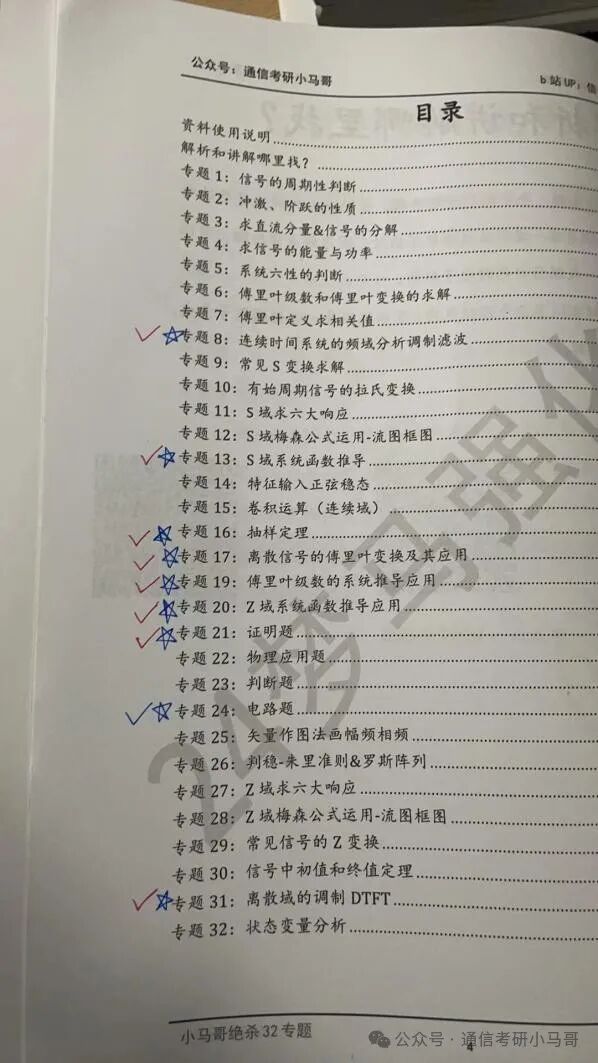 公众号：通信考研小马哥
b 站 UP：信
目录
资料使用说明
解析和讲解哪里找？
专题 1：信号的周期性判断
专题 2：冲激、阶跃的性质
专题 3：求直流分量&信号的分解
专题 4：求信号的能量与功率
专题 5：系统六性的判断
专题 6：傅里叶级数和傅里叶变换的求解
专题 7：傅里叶定义求相关值
专题 8：连续时间系统的频域分析调制滤波
专题 9：常见 S 变换求解
专题 10：有始周期信号的拉氏变换
专题 11：S 域求六大响应
专题 12：S 域梅森公式运用-流图框图
专题 13：S 域系统函数推导
专题 14：特征输入正弦稳态
专题 15：卷积运算（连续域）
专题 16：抽样定理
专题 17：离散信号的傅里叶变换及其应用
专题 19：傅里叶级数的系统推导应用
专题 20：Z 域系统函数推导应用
专题 21：证明题
专题 22：物理应用题
专题 23：判断题
专题 24：电路题
专题 25：矢量作图法画幅频相频
专题 26：判稳-朱里准则&罗斯阵列
专题 27：Z 域求六大响应
专题 28：Z 域梅森公式运用-流图框图
专题 29：常见信号的 Z 变换
专题 30：信号中初值和终值定理
专题 31：离散域的调制 DTFT
专题 32：状态变量分析
24梦马强化
小马哥绝杀 32 专题
4
公众号·通信考研小马哥